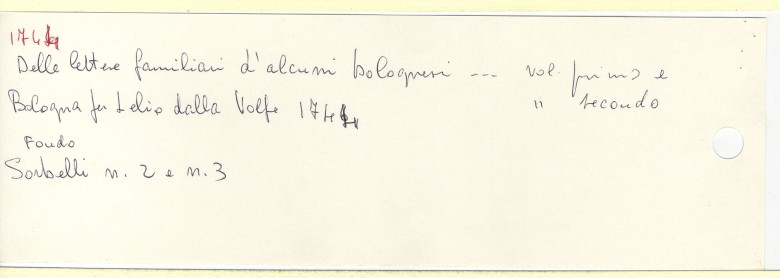 1744
Delle lettere familiari d'alcuni bolognesi --- vol. primo e
Bologna per Lelio dalla Volpe 1744 " secondo
Fondo
Sorbelli n. 2 e n. 3